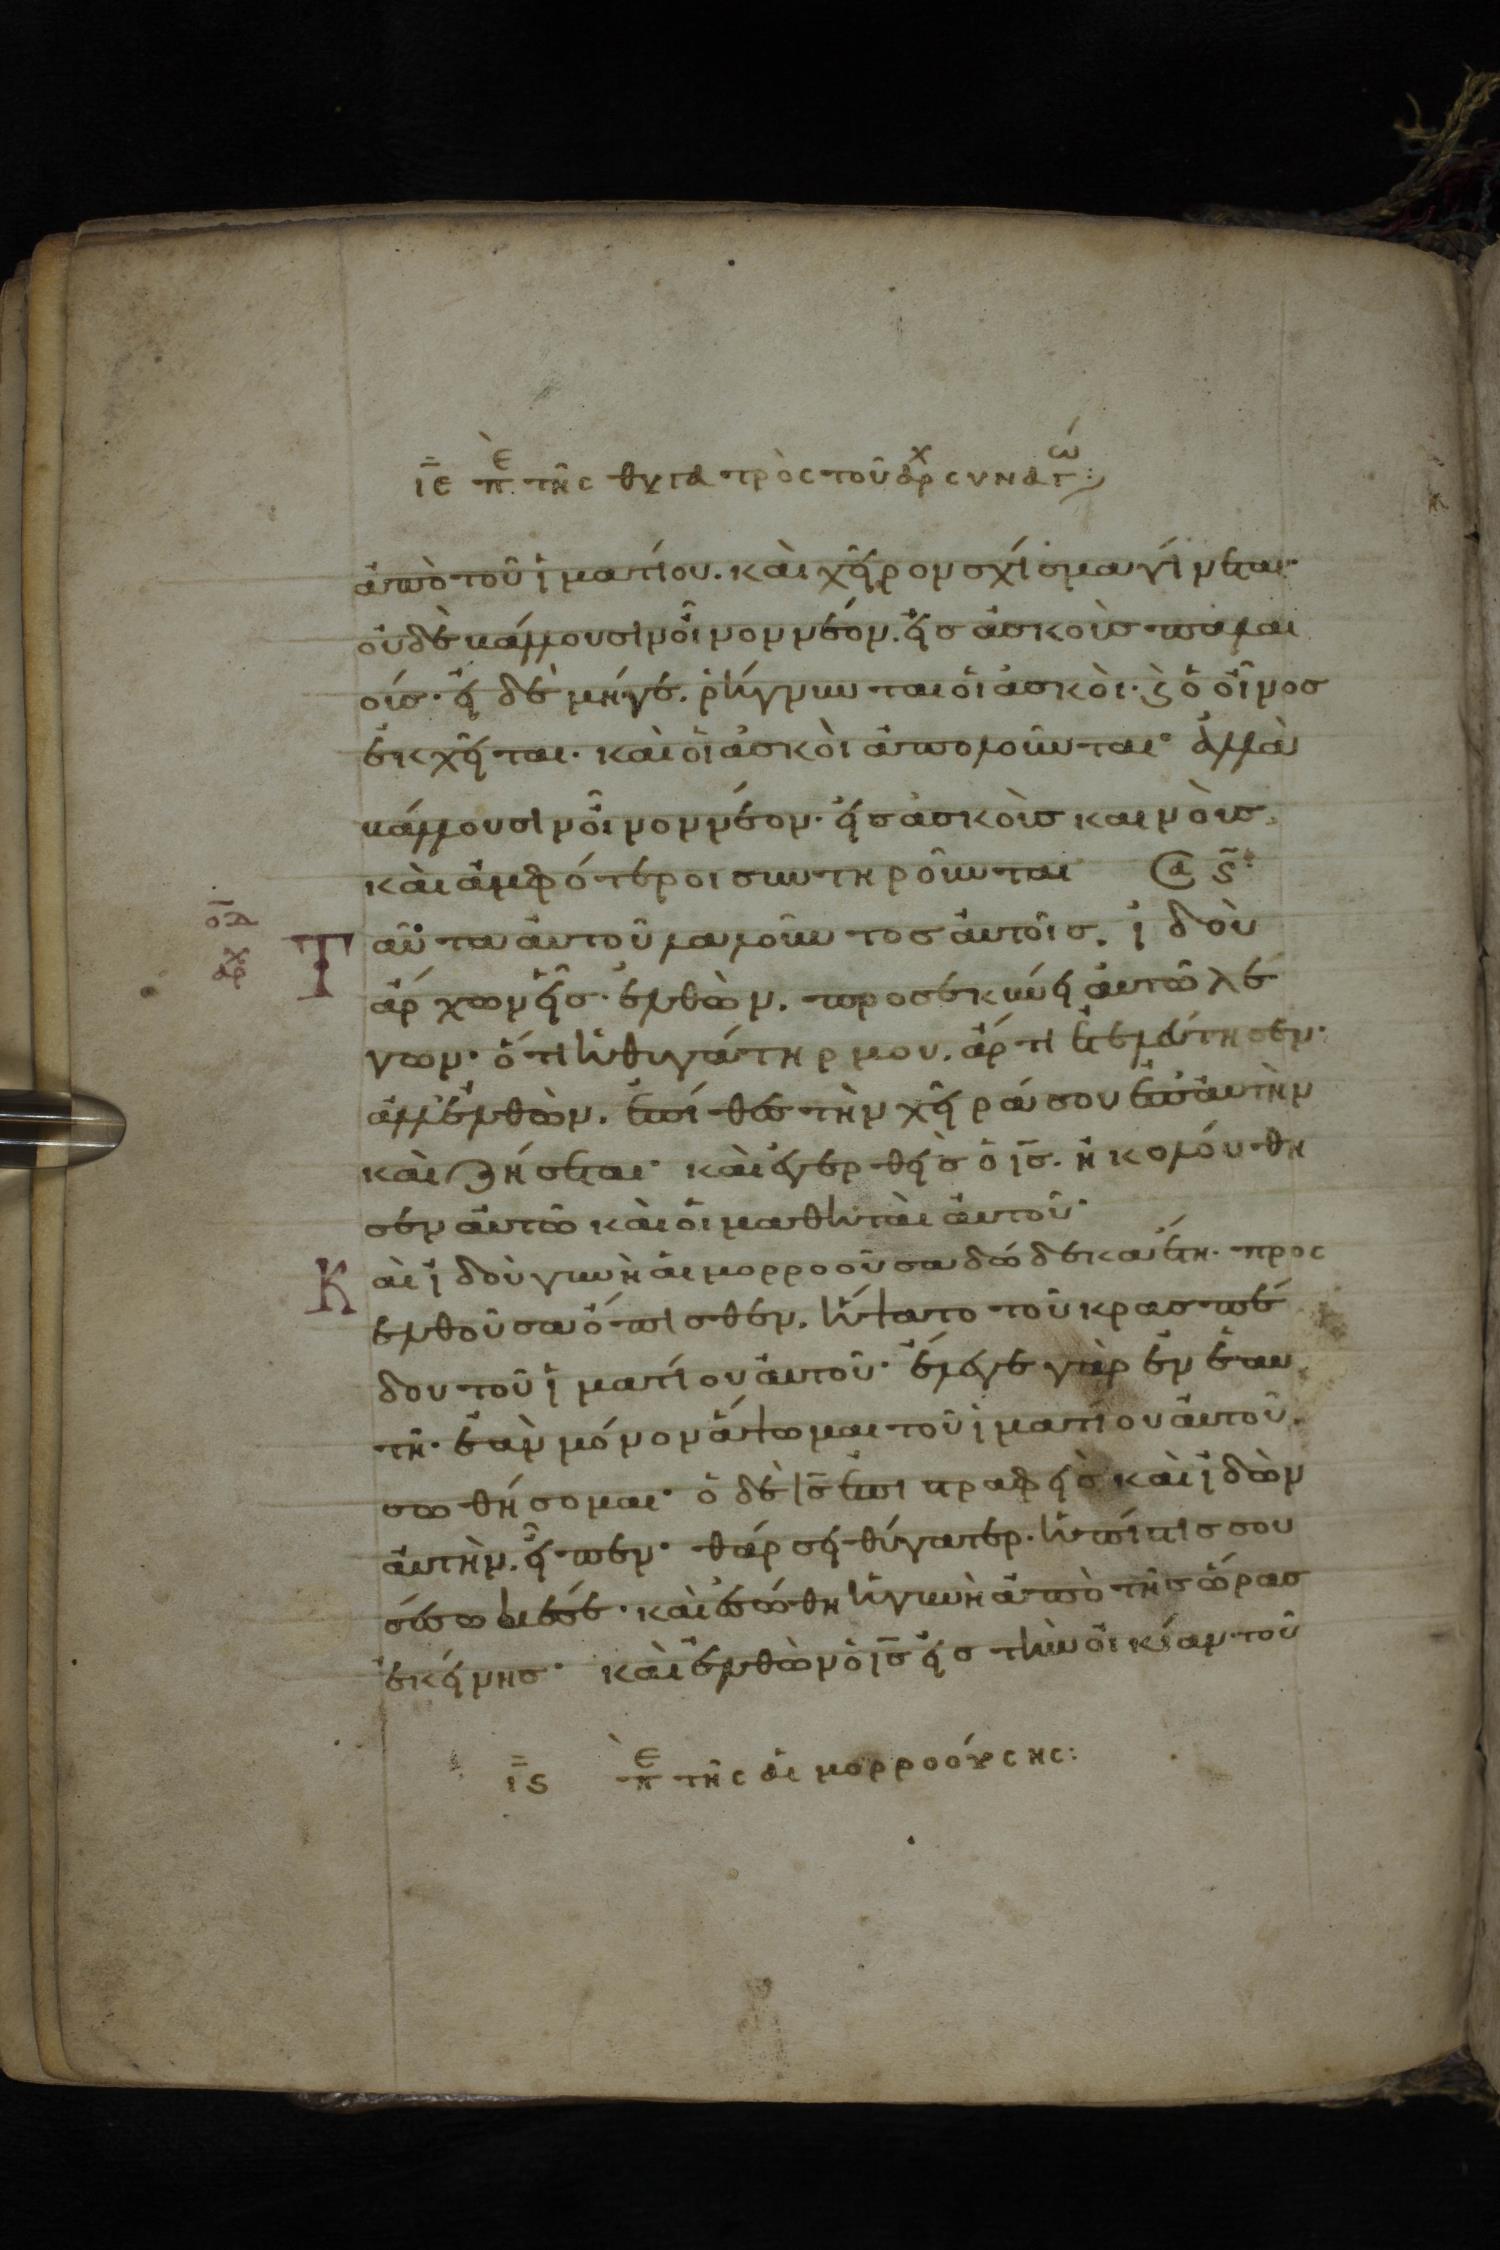 ιε πε τῆς θυγα πρὸς τοῦ ἀρχ συναγώ:
ἀπὸ τοῦ ἱματίου. καὶ χεῖρον σχίσμα γίνεται·
οὐδὲ βάλλουσιν οἶνον νέον. εἰς ἀσκοὺς παλαι
οίς· εἰ δὲ μήγε. ῥήγνυνται οἱ ἀσκοὶ· ϛ ὁ οἶνος
ἐκχεῖται. καὶ οἱ ἀσκοὶ ἀπολοῦνται· ἀλλὰ
βάλλουσιν οἶνον νέον. εἰς ἀσκοὺς καινοὺς.
καὶ ἀμφότεροι συντηροῦνται
οι
Ταῦτα αὐτοῦ λαλοῦντος αὐτοῖς. ἰδοὺ
αρχ
ἄρχων εἷς. ἐλθὼν. προσεκύνει αὐτῶ λέ
γων· ὅτι ἡ θυγάτηρ μου. ἄρτι ἐτελεύτησεν·
ἀλλ' ἐλθὼν. ἐπίθες τὴν χεῖρά σου ἐπ' αὐτὴν
καὶ ζήσεται· καὶ ἐγερθεὶς ὁ ις. ἠκολούθη
σεν αὐτῶ καὶ οἱ μαθηταὶ αὐτοῦ·
Καὶ ἰδοὺ γυνὴ αἱμορροοῦσα δώδεκα ἔτη. προς
ελθοῦσα ὄπισθεν. ἥψατο τοῦ κρασπέ
δου τοῦ ἱματίου αὐτοῦ· ἔλεγε γὰρ ἐν ἑαυ
τῆ· ἐὰν μόνον ἅψωμαι τοῦ ἱματίου αὐτοῦ.
σωθήσομαι· ὁ δὲ ις ἐπιστραφεὶς καὶ ἰδὼν
αὐτὴν. εἶπεν· θάρσει θύγατερ. ἡ πίστις σου
σέσωκέ σε· καὶ ἐσώθη ἡ γυνὴ ἀπὸ τῆς ὥρας
ἐκείνης· καὶ ἐλθὼν ὁ ις εἰς τὴν οἰκίαν τοῦ
ις πε τῆς αἱμορροούσης: